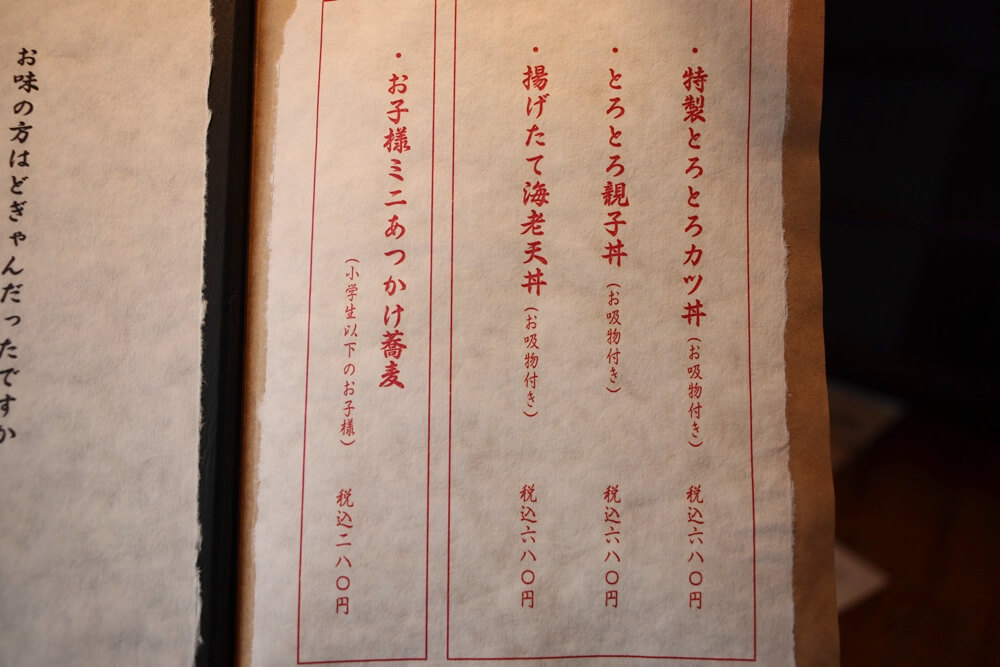 ・特製とろとろカツ丼(お吸物付き) 税込六八〇円
・とろとろ親子丼(お吸物付き) 税込六八〇円
・揚げたて海老天丼(お吸物付き) 税込六八〇円
・お子様ミニあつかけ蕎麦
(小学生以下のお子様) 税込二八〇円
お味の方はどぎゃんだったですか